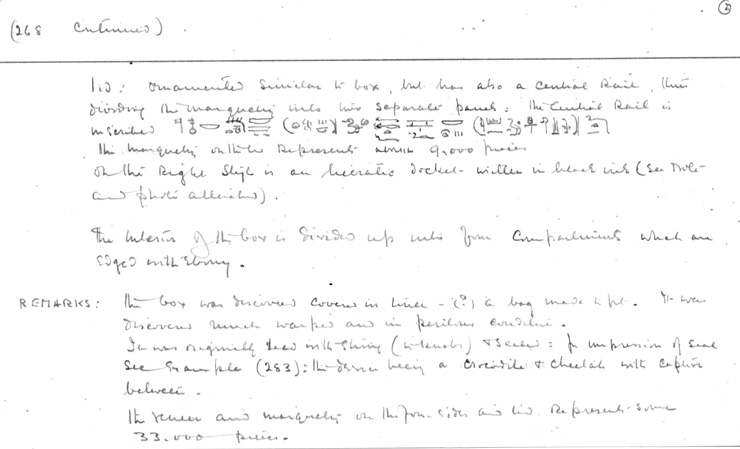 (268 Continued)
②
Lid: Ornamented similar to box, but has also a central Rail, thus
dividing the marquetry into two separate panels: The Central Rail is
inscribed
The marquetry on the lid represents 9,000 pieces
On the Right Stile is an hieratic Docket written in black ink (see note
and photo attached).
The interior of the box is divided up into four compartments which are
edged with Ebony.
REMARKS: The box was discovered covered in linen - (?) a bag made to fit. It was
discovered much warped and in perilous condition.
It was originally tied with string (to knobs) & Sealed: for impression of seal
see Example (283): the device being a Crocodile & Cheetah with captive
between.
The veneer and marquetry on the four sides and lid represents some
33,000 pieces.